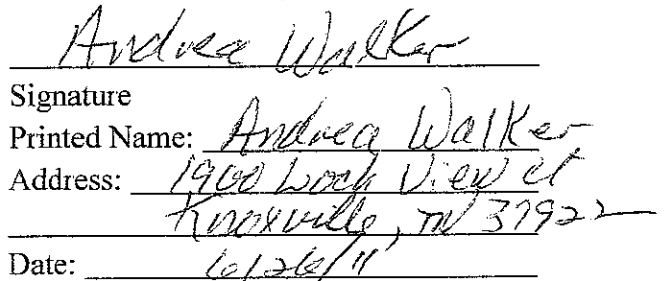 Andrea Walker
Signature
Printed Name: Andrea Walker
Address: 1900 Loch View Ct
Knoxville, TN 37922
Date: 6/26/11